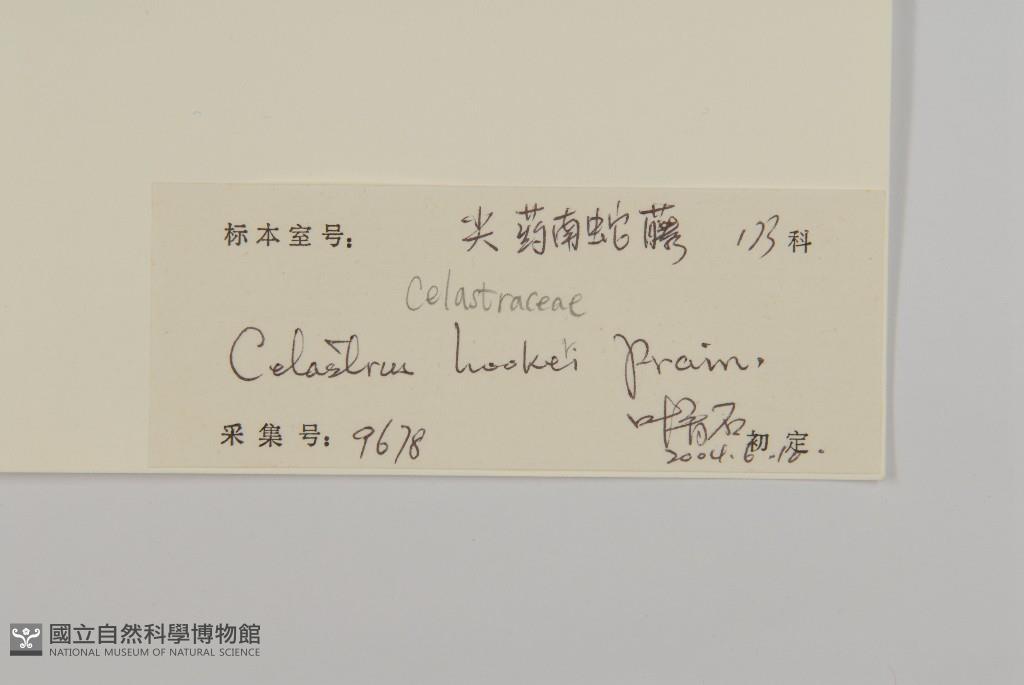 标本室号： 尖药南蛇藤 173科
Celastraceae
Celastrus hookeri Prain.
采集号：9678 叶育石初定
2004.6.18.
國立自然科學博物館
NATIONAL MUSEUM OF NATURAL SCIENCE